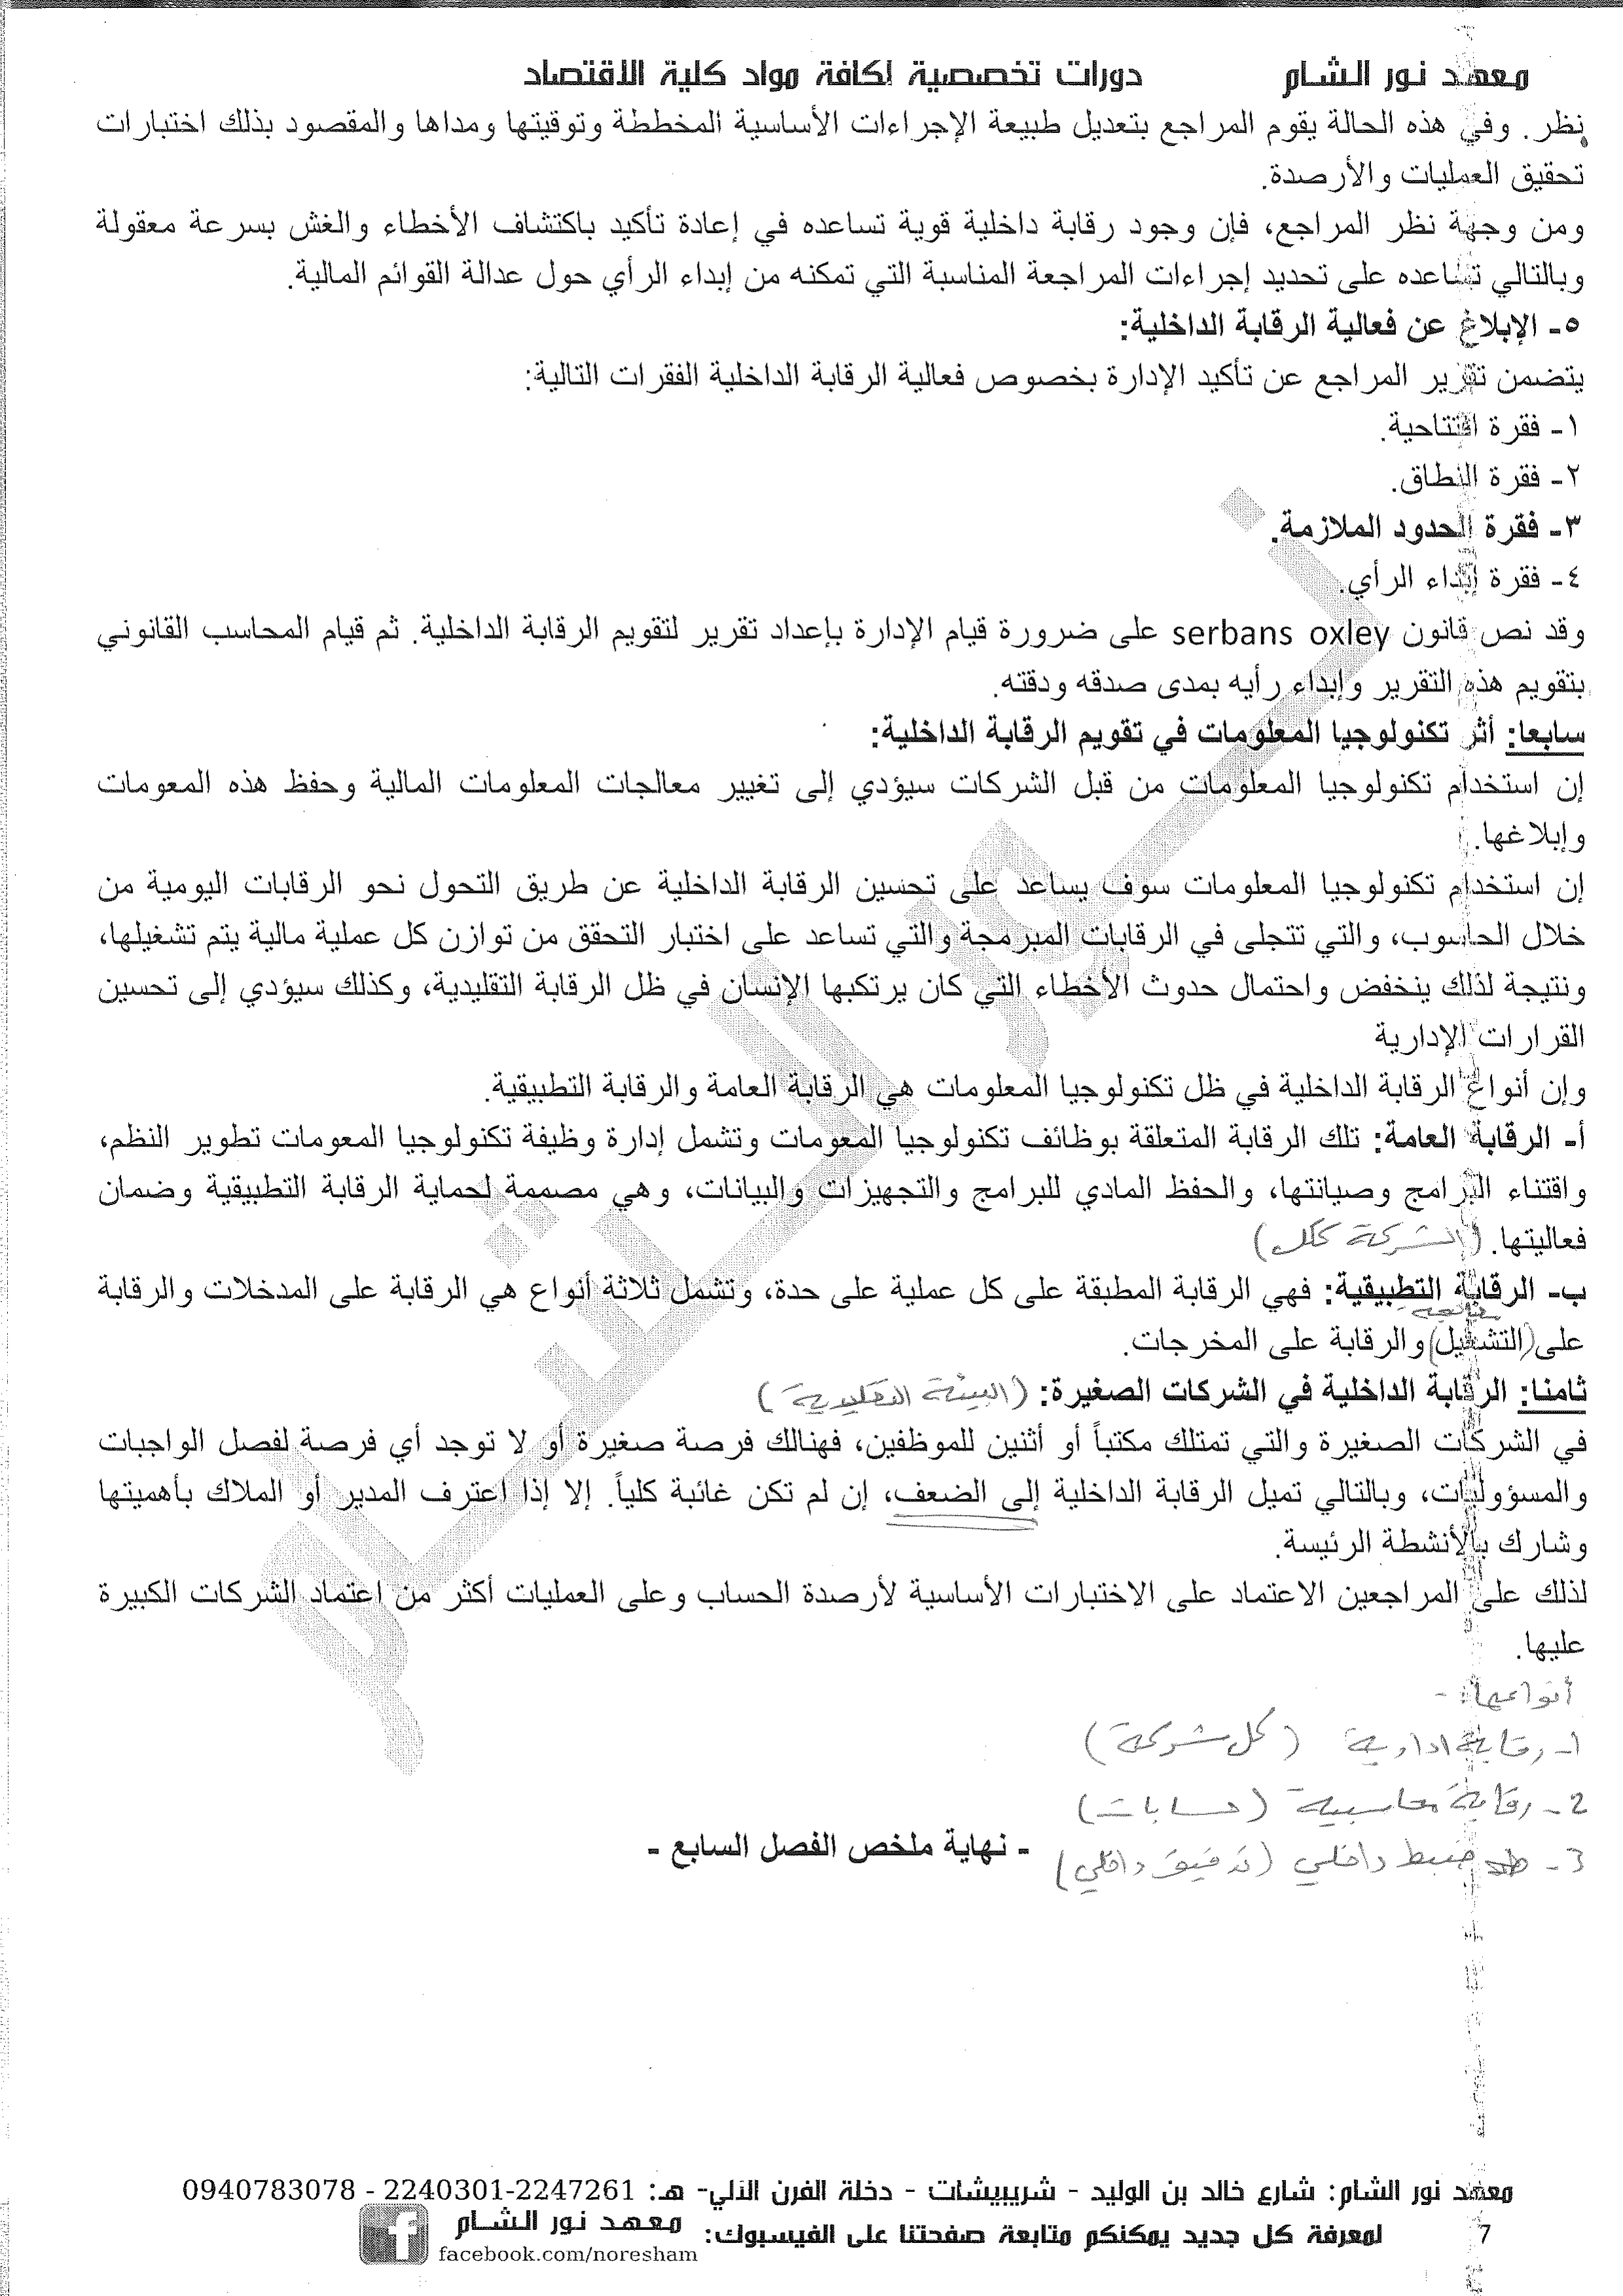 معهد نور الشام دورات تخصصية لكافة مواد كلية الاقتصاد
نظر. وفي هذه الحالة يقوم المراجع بتعديل طبيعة الإجراءات الأساسية المخططة وتوقيتها ومداها والمقصود بذلك اختبارات
تحقيق العمليات والأرصدة.
ومن وجهة نظر المراجع، فإن وجود رقابة داخلية قوية تساعده في إعادة تأكيد باكتشاف الأخطاء والغش بسرعة معقولة
وبالتالي تساعده على تحديد إجراءات المراجعة المناسبة التي تمكنه من إبداء الرأي حول عدالة القوائم المالية.
٥- الإبلاغ عن فعالية الرقابة الداخلية:
يتضمن تقرير المراجع عن تأكيد الإدارة بخصوص فعالية الرقابة الداخلية الفقرات التالية:
١- فقرة افتتاحية.
٢- فقرة النطاق.
٣- فقرة الحدود الملازمة.
٤- فقرة إبداء الرأي.
وقد نص قانون serbans oxley على ضرورة قيام الإدارة بإعداد تقرير لتقويم الرقابة الداخلية. ثم قيام المحاسب القانوني
بتقويم هذه التقرير وإبداء رأيه بمدى صدقه ودقته.
سابعا: أثر تكنولوجيا المعلومات في تقويم الرقابة الداخلية:
إن استخدام تكنولوجيا المعلومات من قبل الشركات سيؤدي إلى تغيير معالجات المعلومات المالية وحفظ هذه المعومات
وإبلاغها.
إن استخدام تكنولوجيا المعلومات سوف يساعد على تحسين الرقابة الداخلية عن طريق التحول نحو الرقابات اليومية من
خلال الحاسوب، والتي تتجلى في الرقابات المبرمجة والتي تساعد على اختبار التحقق من توازن كل عملية مالية يتم تشغيلها،
ونتيجة لذلك ينخفض واحتمال حدوث الأخطاء التي كان يرتكبها الإنسان في ظل الرقابة التقليدية، وكذلك سيؤدي إلى تحسين
القرارات الإدارية
وإن أنواع الرقابة الداخلية في ظل تكنولوجيا المعلومات هي الرقابة العامة والرقابة التطبيقية.
أ- الرقابة العامة: تلك الرقابة المتعلقة بوظائف تكنولوجيا المعومات وتشمل إدارة وظيفة تكنولوجيا المعومات تطوير النظم،
واقتناء البرامج وصيانتها، والحفظ المادي للبرامج والتجهيزات والبيانات، وهي مصممة لحماية الرقابة التطبيقية وضمان
فعاليتها. (الشركة ككل)
ب- الرقابة التطبيقية: فهي الرقابة المطبقة على كل عملية على حدة، وتشمل ثلاثة أنواع هي الرقابة على المدخلات والرقابة
على (التشغيل) والرقابة على المخرجات.
ثامنا: الرقابة الداخلية في الشركات الصغيرة: (البيئة التقليدية)
في الشركات الصغيرة والتي تمتلك مكتباً أو أثنين للموظفين، فهنالك فرصة صغيرة أو لا توجد أي فرصة لفصل الواجبات
والمسؤوليات، وبالتالي تميل الرقابة الداخلية إلى الضعف، إن لم تكن غائبة كلياً. إلا إذا اعترف المدير أو الملاك بأهميتها
وشارك بالأنشطة الرئيسة.
لذلك على المراجعين الاعتماد على الاختبارات الأساسية لأرصدة الحساب وعلى العمليات أكثر من اعتماد الشركات الكبيرة
عليها.
أنواعها:-
1- رقابة ادارية (كل شركة)
2- رقابة محاسبية (حسابات)
3- ضبط داخلي (تدقيق داخلي)
- نهاية ملخص الفصل السابع -
معهد نور الشام: شارع خالد بن الوليد - شريبيشات - دخلة الفرن الآلي- هـ: 2247261-2240301 - 0940783078
7 لمعرفة كل جديد يمكنكم متابعة صفحتنا على الفيسبوك: معهد نور الشام
facebook.com/noresham
نور الشام